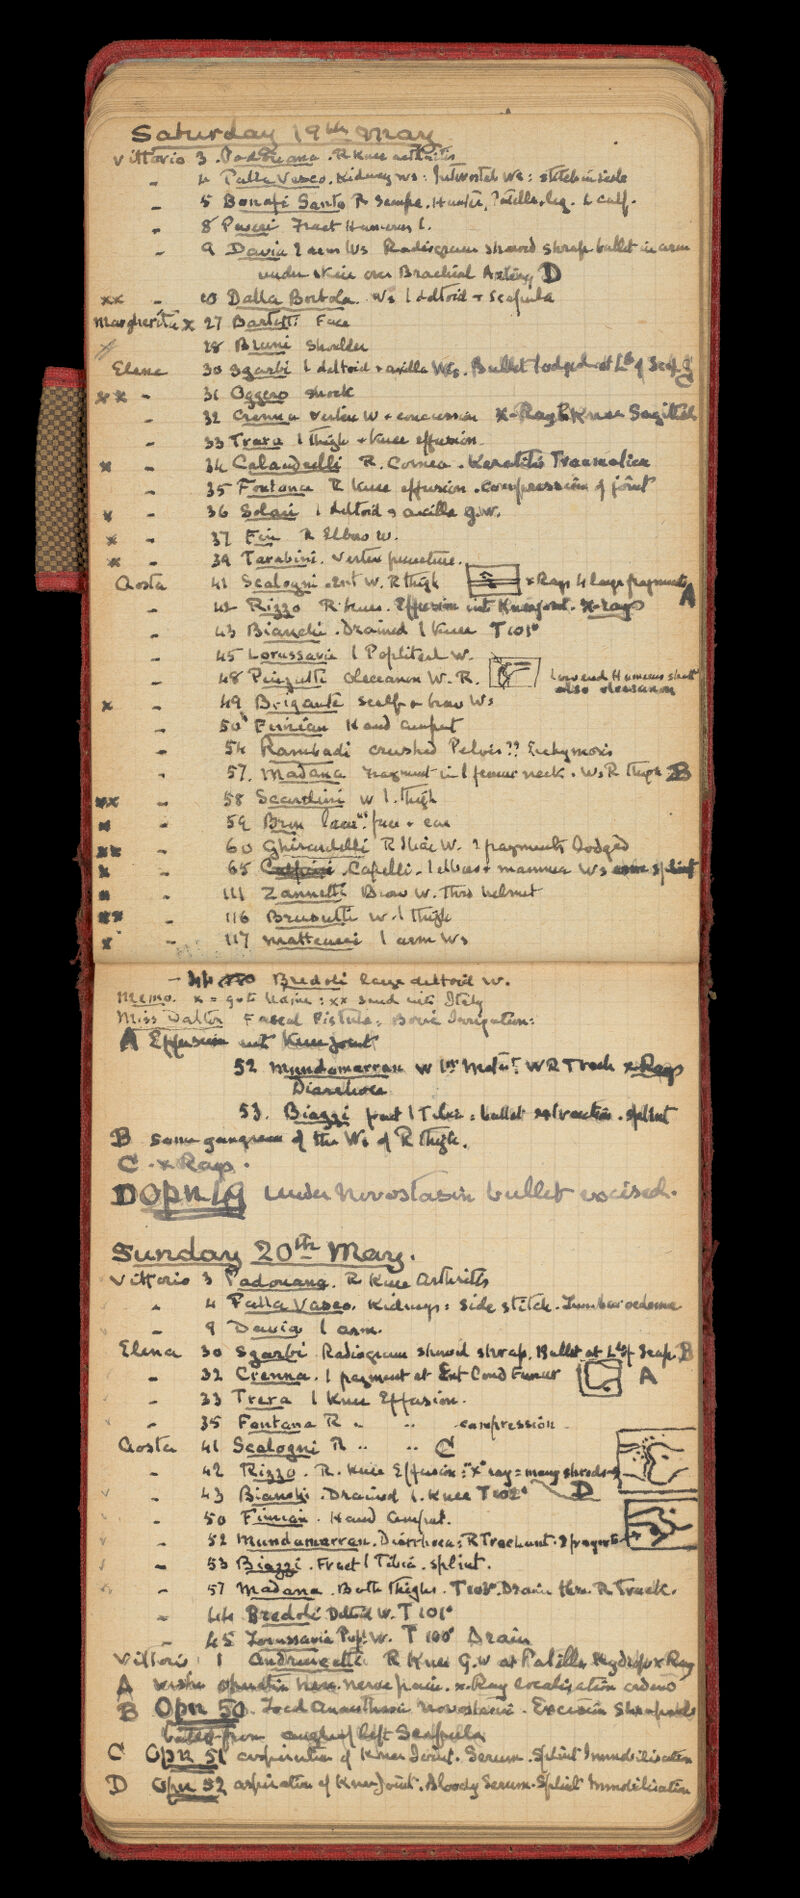 Saturday 19th May
Vittorio 3 . Padouana . R Knee arthritis
- 4 Palla Vasco. Kidney ws : Intercostal Ws : stitch in side
- 5 Bonafi Santo R Hunter, leg. L calf.
- 8 Fract Humerus l.
- 9 Davia 2 arm Ws Radiogram showed shrap bullet in arm
under skin over Brachial Artery D
xx - 10 Dalla Bortola. Ws l deltoid + Scapula
Margherita x 27 Bartotti Face
28 Bruni Shoulder
Elena 30 Sgarbi l deltoid + axilla Ws. Bullet lodged at Lt of Scap
xx - 31 Oggero shock
- 32 Crenna vertex W + concussion x-Ray Knee Sagittal
- 33 Trera l thigh + knee effusion
x - 34 Calandrelli R. Cornea . Keratitis Traumatica
- 35 Fontana R Knee effusion . compression of joint
x - 36 Solari l deltoid + axilla g.w.
x - 37 Fin R Elbow w.
x - 39 Tarabini. Vertex puncture.
Aosta 41 Scalogni . W. R thigh x Rays 4 large fragments
- 42 Rizzo R knee. Effusion into Knee joint. x-rays A
- 43 Bianchi . Drained l knee T 101°
- 45 Lorussavia l Popliteal W.
- 48 olecranon W. R. Low end Humerus shatt
also olecranon
x - 49 Brigante scalp + brow Ws
- 50 Finizian Hand amput
- 54 Rambadi crushed Pelvis ?? Ecchymosis
- 57. Madana fragment in l femur neck . Ws R thigh B
xx - 58 Scardini w l. thigh
x - 59 Brun face + ear
xx - 60 Ghirardelli R Iliac W. 2 fragments lodged
x - 65 Capelli . l elbow + mamma Ws splint
x - 111 Zannetti Brow W. thro helmet
xx - 116 Brusutti W. l thigh
x - 117 Matteucci l arm Ws
- 44 Bredoli large deltoid w.
Memo. x = gute home : xx send into Italy
Miss Walter Faecal Fistula : Boric Irrigation :
A Effusion into Knee joint
52 Mundamarran W R Troch x-Rays
Diarrhoea
53. Biazzi fract l Tibia : bullet extraction . splint
B Some gangrene of the Ws of R thigh.
C . x Rays .
D Opn 49 under Novostasin bullet excised.
Sunday 20th May.
Vittorio 3 Padouana. R Knee Arthritis
- 4 Palla Vasco. Kidneys : Side stitch . Lumbar oedema
- 9 Davia l arm.
Elena 30 Sgarbi Radiogram showed shrap. Bullet at Lt of Scap. B
- 32 Crenna . l fragment at Ext Cond Femur A
- 33 Trera l Knee Effusion.
- 35 Fontana R " " compression
Aosta 41 Scalogni R " " C
- 42 Rizzo . R. Knee Effusion : "X" ray = many shreds
- 43 Bianchi . Drained l. Knee T 102° D
- 50 Finizian . Hand amput.
- 52 Mundamarran. Diarrhoea : R Trochant . 2 fragments
- 53 Biazzi . Fract l Tibia . splint.
- 57 Madana . Both thighs . Drain thro. R Track.
- 44 Bredoli Deltoid W. T 101°
- 45 Lorussavia Popl W. T 100° Drain
Vittorio 1 R Knee G.W at Patella x Ray
A wishes operation nerve pain . x-Ray localisation ordered
B Opn 50. Local Anaesthesia Novostasin . Excision Shrapnel
bullet from angle of left Scapula
C Opn 51 aspiration of Knee Joint. Serum . Splint Immobilisation
D Opn 52 aspiration of Knee Joint . Bloody Serum . Splint Immobilisation